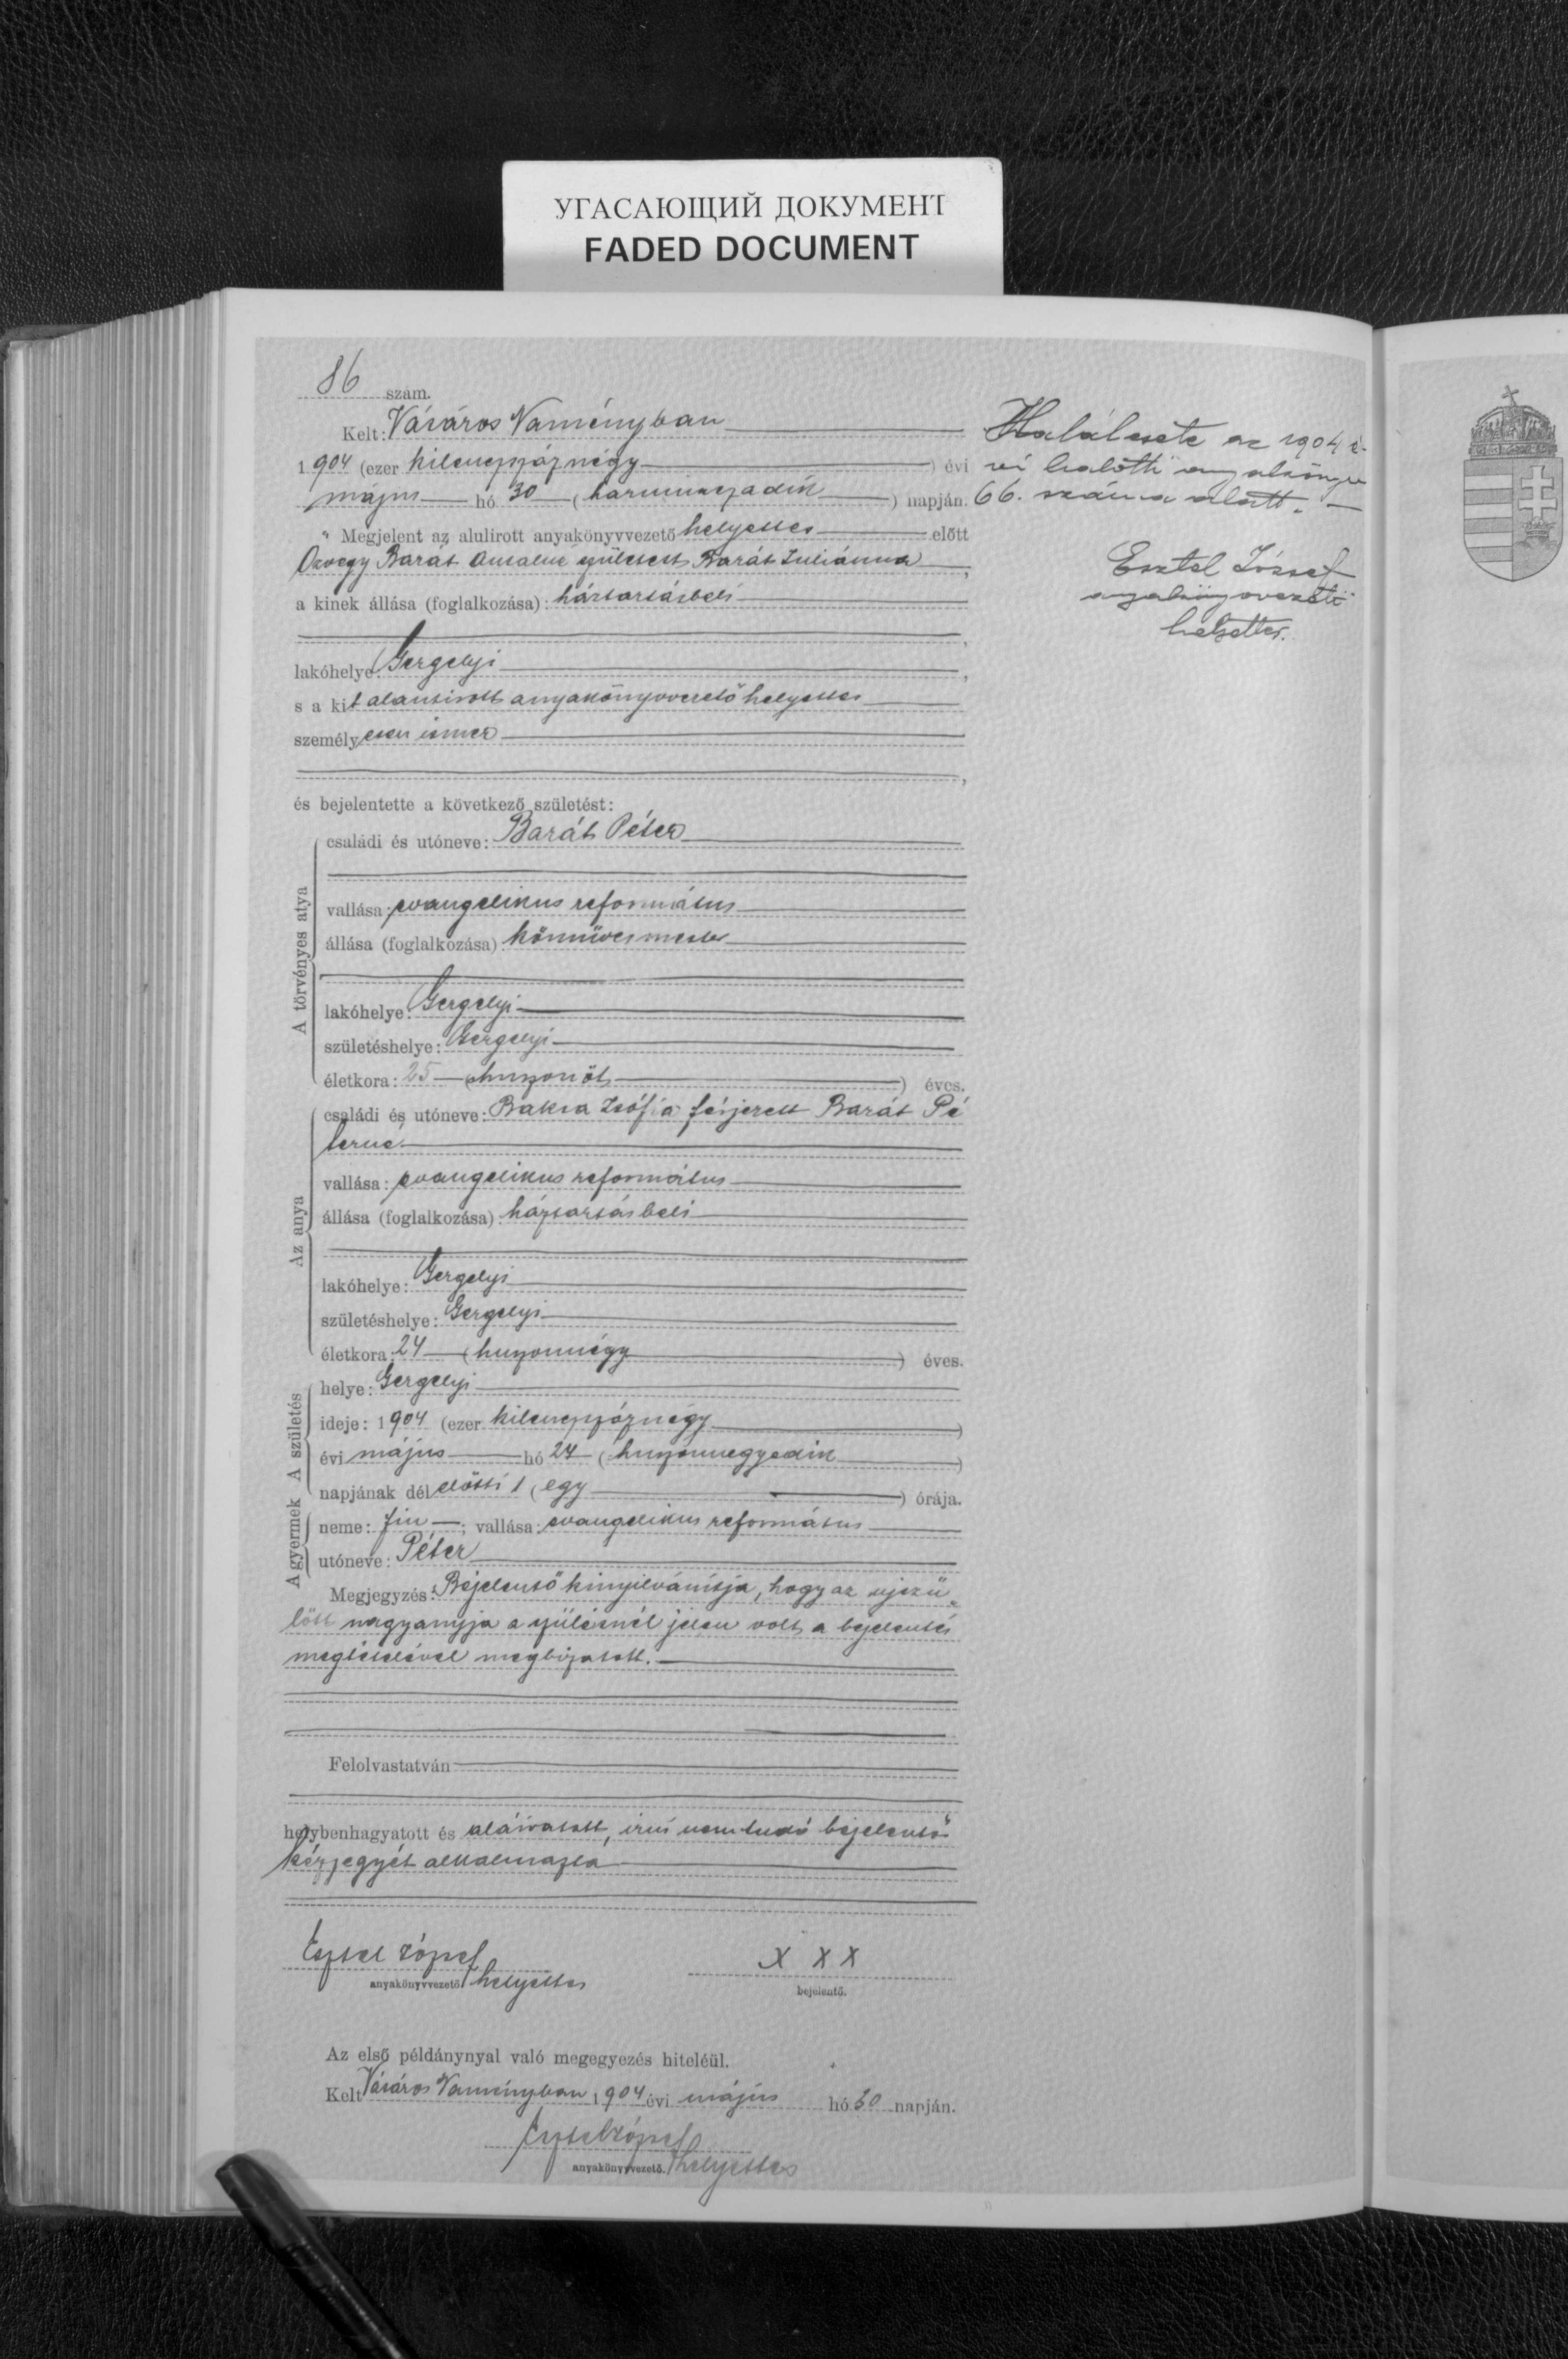 УГАСАЮЩИЙ ДОКУМЕНТ
FADED DOCUMENT
86 szám.
Kelt: Vásáros Naményban
1904 (ezer kilencszáznégy) évi
május hó 30 (harminczadik) napján.
Megjelent az alulirott anyakönyvvezető helyettes előtt
Özvegy Barát Antalné született Barát Juliánna,
a kinek állása (foglalkozása): háztartásbeli
lakóhelye: Gergelyi,
s a kit alantirott anyakönyvvezető helyettes
személyesen ismer
és bejelentette a következő születést:
A törvényes atya
családi és utóneve: Barát Péter
vallása: evangelikus református
állása (foglalkozása): kőművesmester
lakóhelye: Gergelyi
születéshelye: Gergelyi
életkora: 25 (huszonöt) éves.
Az anya
családi és utóneve: Baksa Zsófia férjezett Barát Pé
terné
vallása: evangelikus református
állása (foglalkozása): háztartásbeli
lakóhelye: Gergelyi
születéshelye: Gergelyi
életkora: 24 (huszonnégy) éves.
A születés
helye: Gergelyi
ideje: 1904 (ezer kilencszáznégy)
évi május hó 24 (huszonnegyedik)
napjának délelőtti 1 (egy) órája.
A gyermek
neme: fiu; vallása: evangelikus református
utóneve: Péter
Megjegyzés: Bejelentő kinyilvánítja, hogy az ujszü-
lött nagyanyja a szülésnél jelen volt, a bejelentés
megtételével megbizatott.
Felolvastatván
helybenhagyatott és aláiratott, irni nem tudó bejelentő
kézjegyét alkalmazta
Esztel József
anyakönyvvezető helyettes
X X X
bejelentő.
Az első példánynyal való megegyezés hiteléül.
Kelt Vásáros Naményban 1904 évi május hó 30 napján.
Esztel József
anyakönyvvezető. helyettes
Halálesete az 1904 é-
vi halotti anyakönyv
66. száma alatt.
Esztel József
anyakönyvvezető
helyettes.